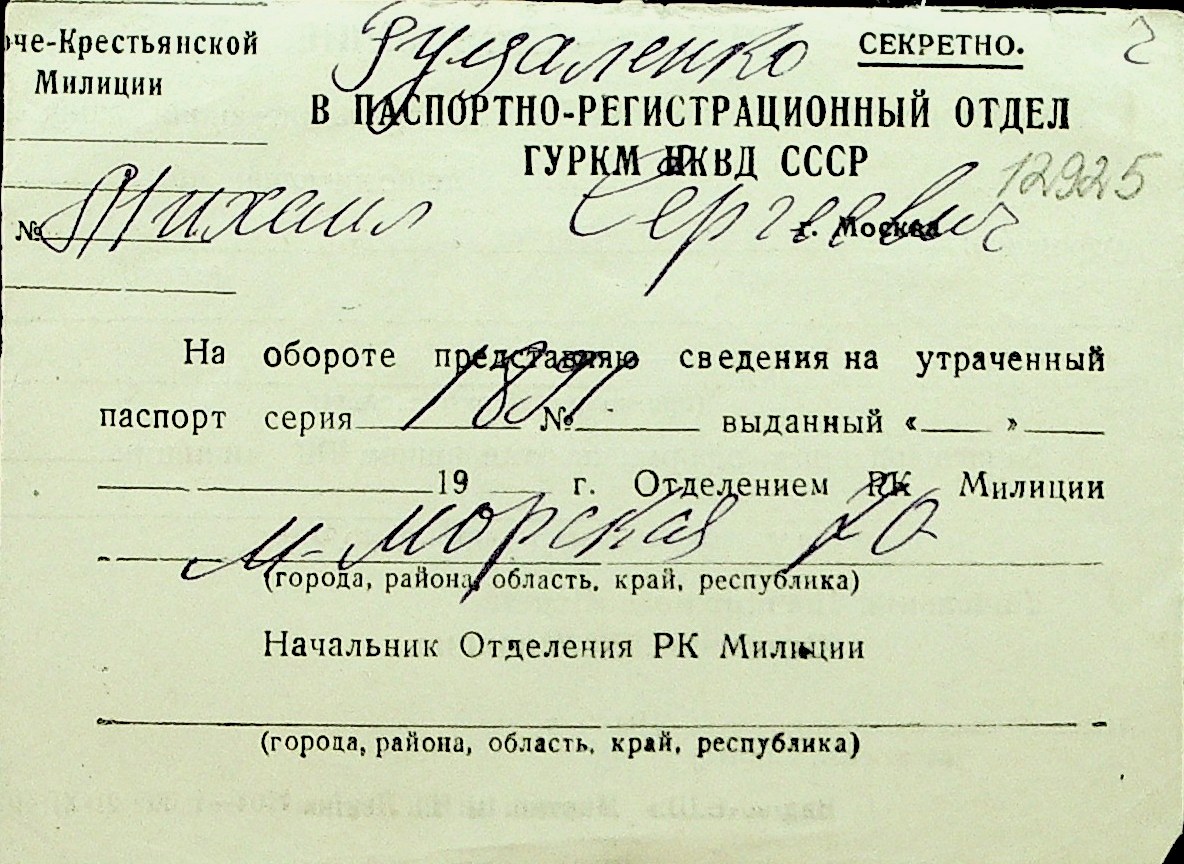 че-Крестьянской
Милиции
СЕКРЕТНО.
В ПАСПОРТНО-РЕГИСТРАЦИОННЫЙ ОТДЕЛ
ГУРКМ НКВД СССР
12925
Михаил Сергеевич
№ г. Москва
На обороте представляю сведения на утраченный
1891
паспорт серия № выданный « »
19 г. Отделением РК Милиции
М-Морская 20
(города, района, область, край, республика)
Начальник Отделения РК Милиции
(города, района, область, край, республика)